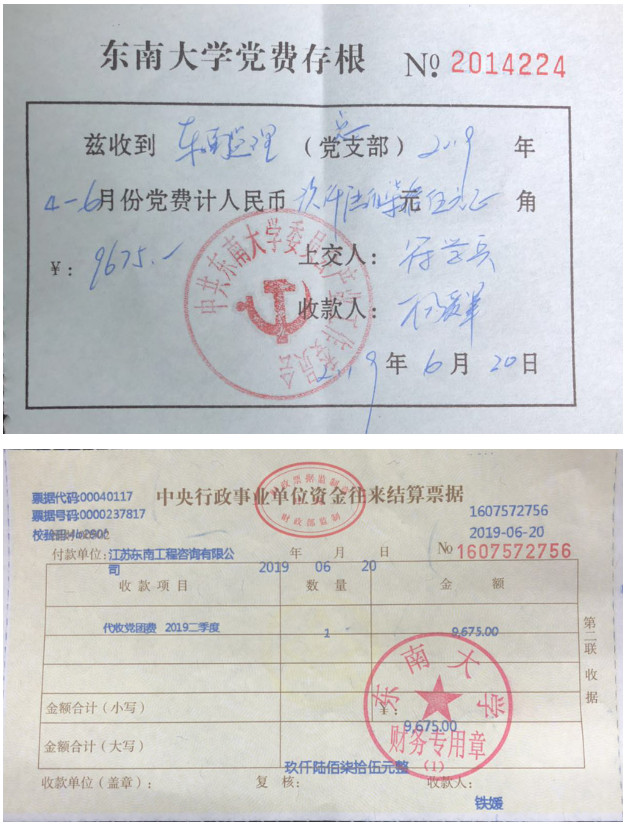 东南大学党费存根 No. 2014224
兹收到 东南监理 (党支部) 2019 年
4-6月份党费计人民币 玖仟陆佰柒拾伍元正 元 角
¥: 9675.-
上交人:
收款人:
2019年6月20日
中共东南大学委员会
票据代码:00040117
票据号码:0000237817
校验码:
中央行政事业单位资金往来结算票据
财政票据监制
财政部监制
1607572756
2019-06-20
No 1607572756
付款单位:江苏东南工程咨询有限公
司
年 月 日
2019 06 20
收款项目 数量 金额
代收党团费 2019二季度 1 9,675.00
第二联 收据
金额合计(小写) ¥:
9,675.00
金额合计(大写)
玖仟陆佰柒拾伍元整
东南大学
财务专用章
(1)
收款单位(盖章): 复核: 收款人:
铁媛